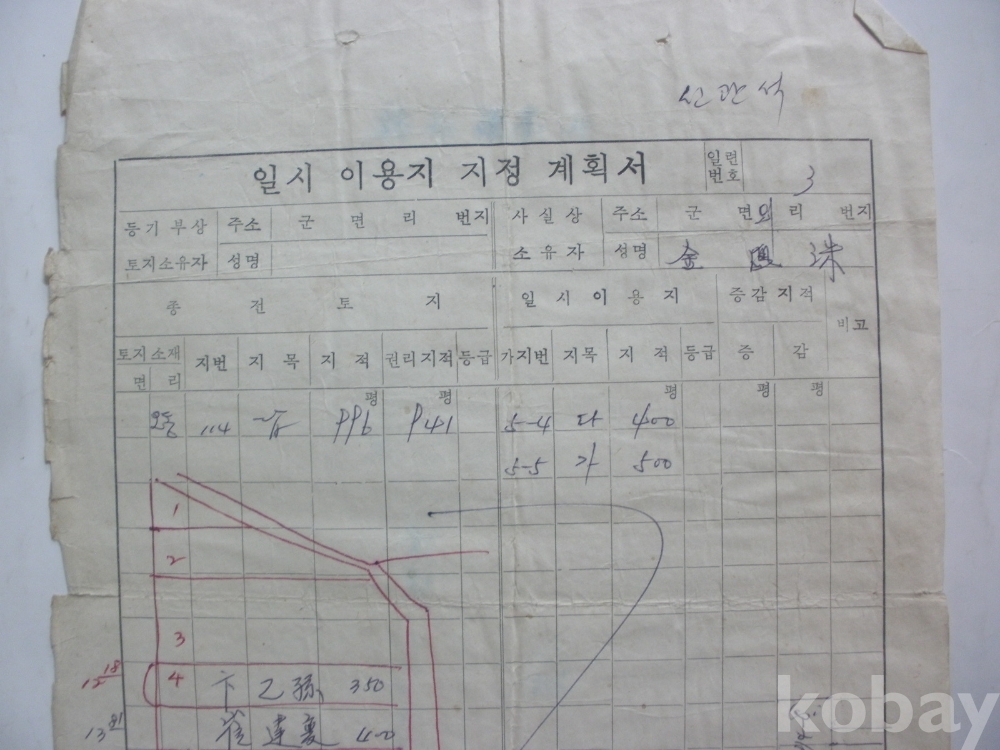 신관석
일시 이용지 지정 계획서 일련번호 3
등기부상 토지소유자 주소 군 면 리 번지 사실상 소유자 주소 군 면 리 번지
성명 성명 金 珠
종전토지 일시이용지 증감지적 비고
토지소재 지번 지목 지적 권리지적 등급 가지번 지목 지적 등급 증 감
면 리
평 평 평 평 평
114 답 996 941 5-4 다 400
5-5 가 500
1
2
3
4 卞乙 350
崔 建
kobay